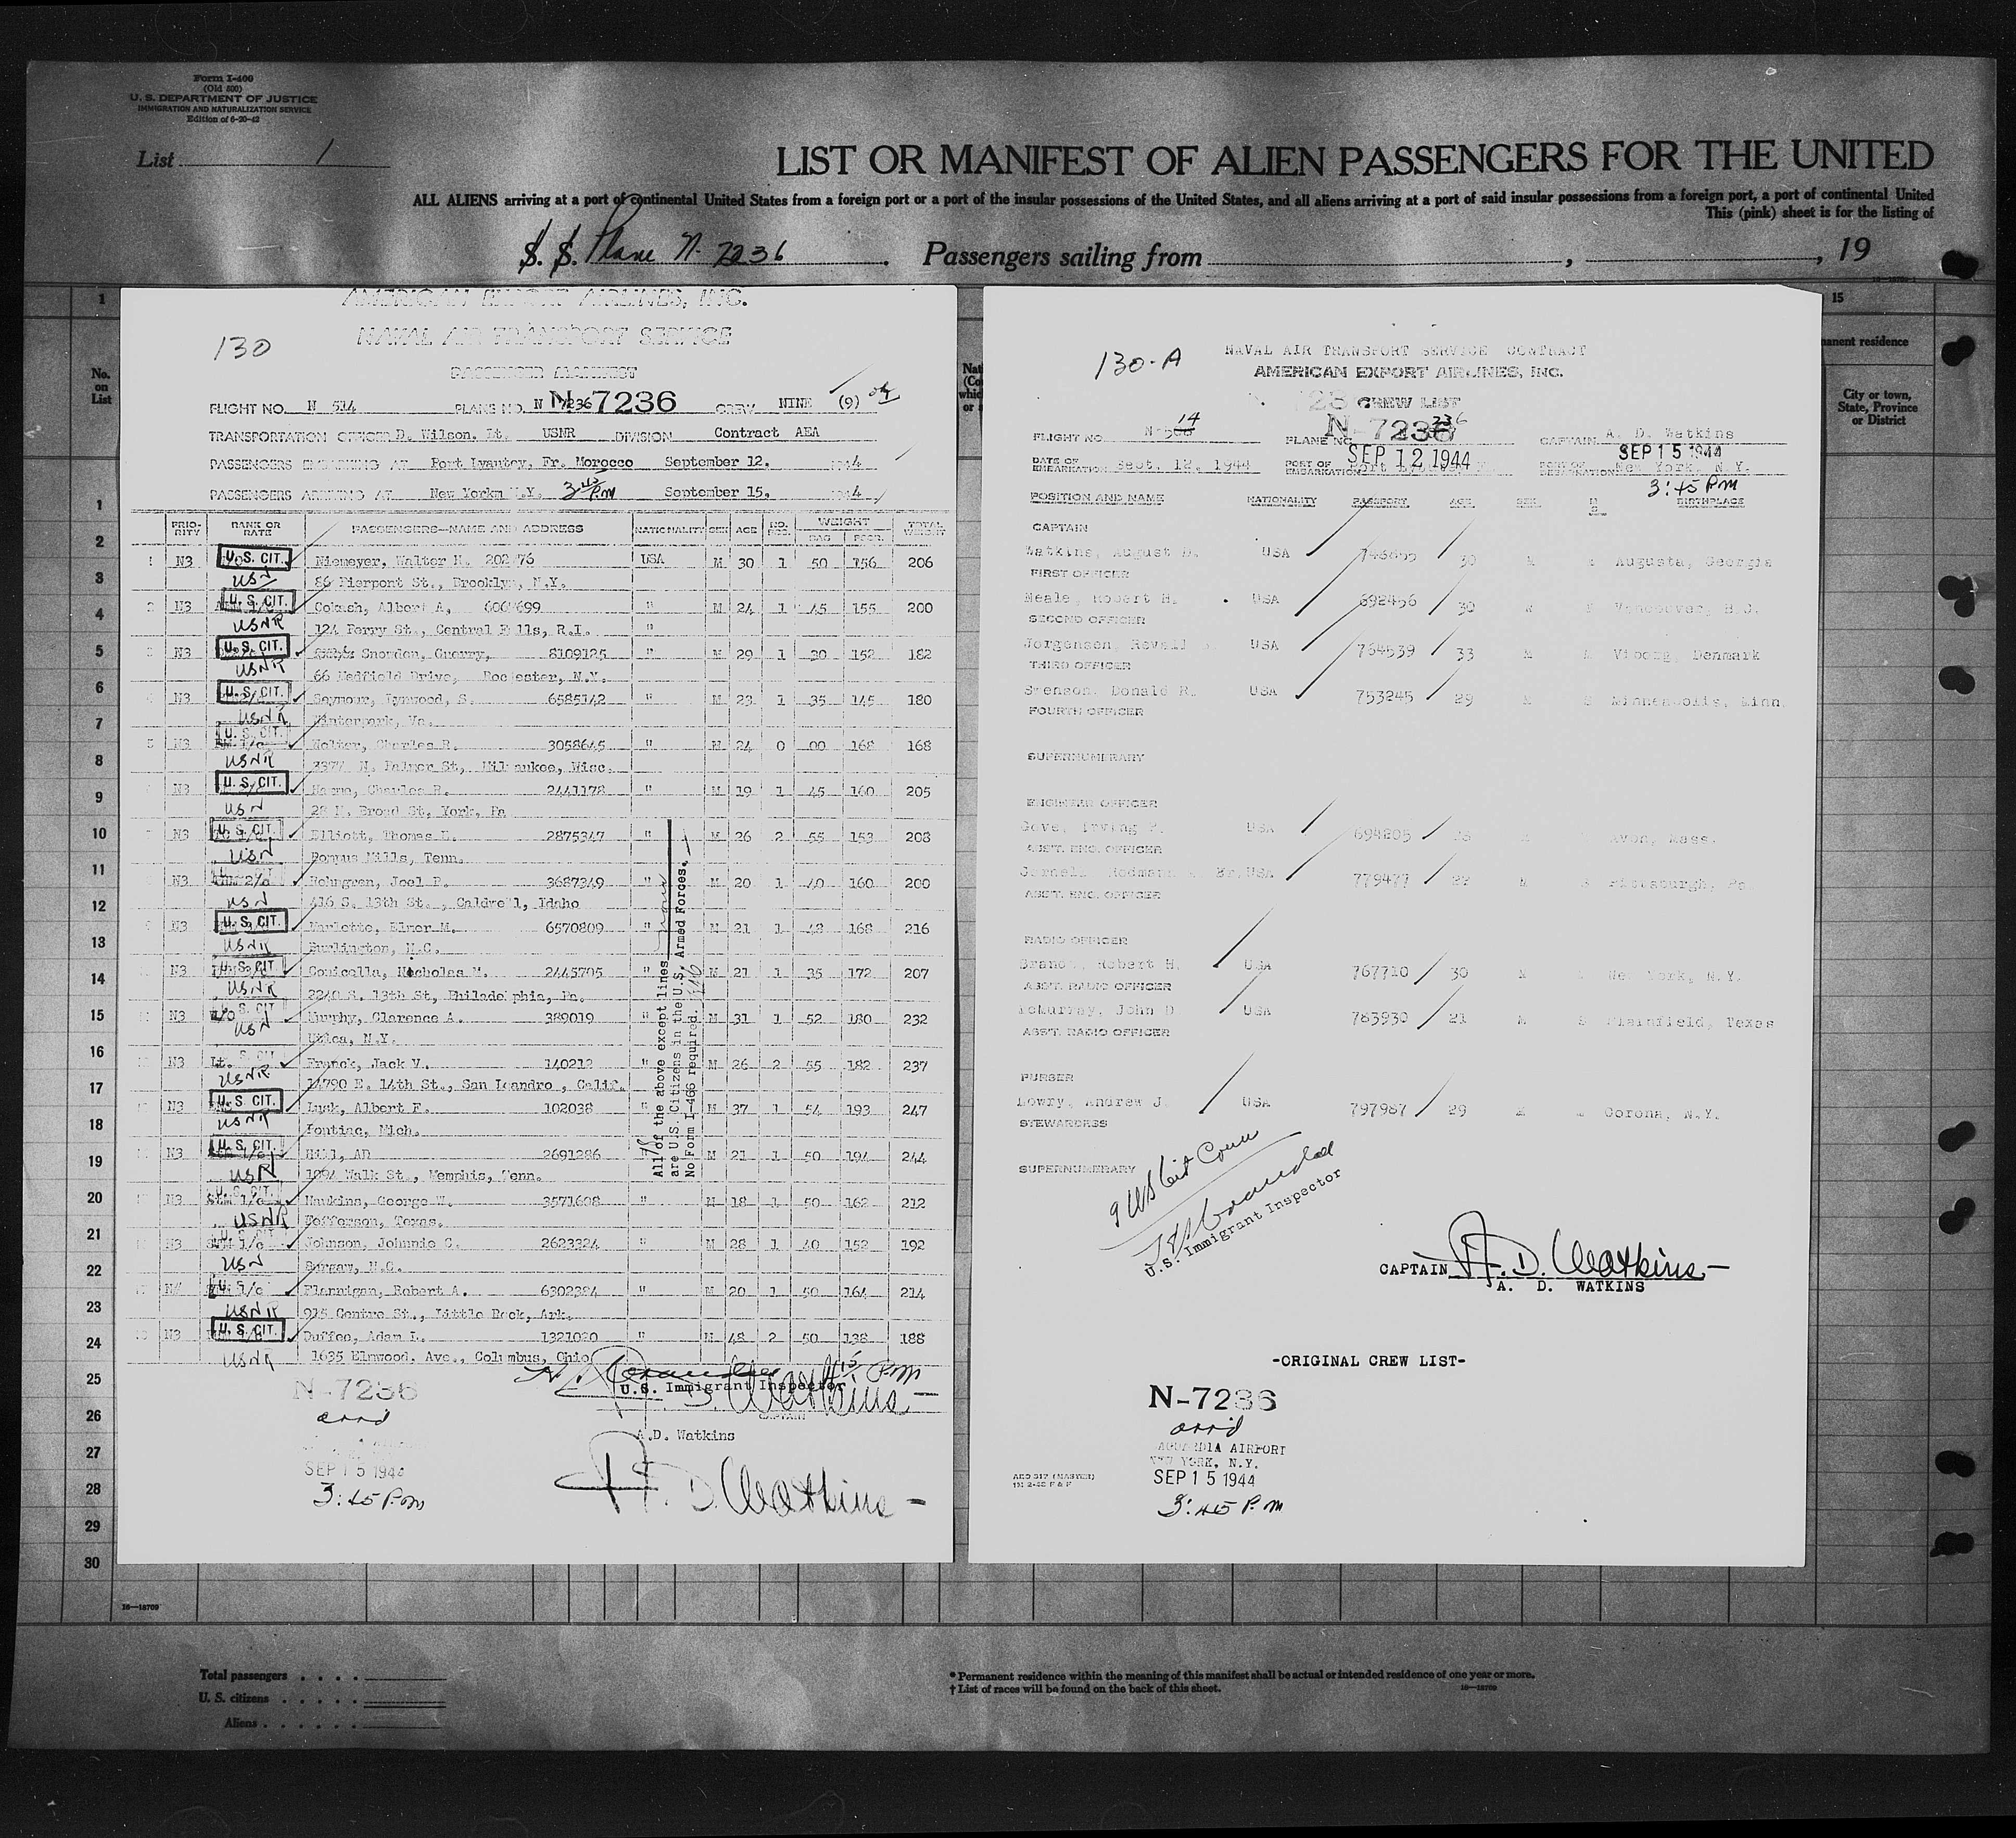 Form I-400
(Old 500)
U. S. DEPARTMENT OF JUSTICE
IMMIGRATION AND NATURALIZATION SERVICE
Edition of 6-20-42
List 1
LIST OR MANIFEST OF ALIEN PASSENGERS FOR THE UNITED
ALL ALIENS arriving at a port of continental United States from a foreign port or a port of the insular possessions of the United States, and all aliens arriving at a port of said insular possessions from a foreign port, a port of continental United
This (pink) sheet is for the listing of
S. S. Plane N. 7236 Passengers sailing from , , 19
AMERICAN EXPORT AIRLINES, INC.
NAVAL AIR TRANSPORT SERVICE
130
PASSENGER MANIFEST
FLIGHT NO. N 514 PLANE NO. N 7236 N-7236 CREW NINE (9)
TRANSPORTATION OFFICER D. Wilson, Lt. USNR DIVISION Contract AEA
PASSENGERS EMBARKING AT Port Lyautey, Fr. Morocco September 12, 1944
PASSENGERS ARRIVING AT New Yorkm N.Y. 3:45 PM September 15, 1944
PRIORITY RANK OR RATE PASSENGERS—NAME AND ADDRESS NATIONALITY SEX AGE NO. PCS. WEIGHT BAG PSGR. TOTAL WEIGHT
1 N3 U. S. CIT. Niemeyer, Walter H. 202 76 USA M 30 1 50 156 206
USN 86 Pierpont St., Brooklyn, N.Y.
2 N3 U. S. CIT. Cokash, Albert A, " M 24 1 45 155 200
USNR 124 Ferry St., Central Falls, R.I. "
3 N3 U. S. CIT. Snowden, Guerry, 8109125 " M 29 1 30 152 182
USNR 66 Medfield Drive, Rochester, N.Y.
4 N3 U. S. CIT. Seymour, Lynwood, S. 6585142 " M 23 1 35 145 180
USNR Winterpark, Va.
5 N3 U. S. CIT. Wolter, Charles R. 3058645 " M 24 0 00 168 168
USNR N. Palmer St, Milwaukee, Wisc.
N3 U. S. CIT. Charles R. 2441178 " M 19 1 45 160 205
USN 28 N. Broad St, York, Pa
N3 U. S. CIT. Elliott, Thomas D. 2875347 " M 26 2 55 153 208
USN Bompus Mills, Tenn.
N3 Holmgren, Joel P. 3687349 " M 20 1 40 160 200
USN 416 S. 13th St., Caldwell, Idaho
N3 U. S. CIT. Marlette, Elmer M. 6570809 " M 21 1 48 168 216
USNR Burlington, N.C.
N3 U. S. CIT Conicella, Nicholas M. 2445705 " M 21 1 35 172 207
USNR 2240 S. 13th St, Philadelphia, Pa.
N3 W/O S. CIT Murphy, Clarence A. 389019 " M 31 1 52 180 232
USN Utica, N.Y.
N3 Lt. S. CIT Franck, Jack V. 140212 " M 26 2 55 182 237
USNR 14790 E. 14th St., San Leandro, Calif.
N3 U. S CIT. Lusk, Albert F. 102038 " M 37 1 54 193 247
USNR Pontiac, Mich.
N3 U. S. CIT. Hill, AD 2691286 " M 21 1 50 194 244
USN Walk St, Memphis, Tenn.
N3 U. S. CIT. Hawkins, George W. 3571608 " M 18 1 50 162 212
USNR Jefferson, Texas.
N3 Johnson, Johnnie C. 2623324 " M 28 1 40 152 192
USN Burgaw, N.C.
U. S Flannigan, Robert A. 6302384 " M 20 1 50 164 214
USNR 915 Centre St., Little Rock, Ark.
N3 U. S. CIT. Duffee, Adam L. 1321020 " M 48 2 50 138 188
USNR 1635 Elmwood. Ave., Columbus, Ohio
All of the above except lines
are U.S. Citizens in the U.S. Armed Forces.
No Form I-466 required.
U.S. Immigrant Inspector
CAPTAIN
A.D. Watkins
A. D. Watkins
N-7236
arrd
SEP 15 1944
3:45 P.m
130-A
NAVAL AIR TRANSPORT SERVICE CONTRACT
AMERICAN EXPORT AIRLINES, INC.
CREW LIST
FLIGHT NO. 14 PLANE NO. N-7236 CAPTAIN A. D. Watkins
DATE OF EMBARKATION Sept. 12, 1944 PORT OF EMBARKATION SEP 12 1944 SEP 15 1944 New York, N.Y.
3:45 PM
POSITION AND NAME NATIONALITY PASSPORT AGE SEX BIRTHPLACE
CAPTAIN
Watkins, August D. USA 30 M Augusta, Georgia
FIRST OFFICER
Neale, Robert H. USA 692456 30 M Vancouver, B.C.
SECOND OFFICER
Jorgensen, Revell USA 764539 33 M Viborg, Denmark
THIRD OFFICER
Svenson, Donald R. USA 753245 29 M Minneapolis, Minn.
FOURTH OFFICER
SUPERNUMERARY
ENGINEER OFFICER
Gove, Irving P. USA 694205 Avon, Mass.
ASST. ENG. OFFICER
Cornell, Rodman USA 779477 22 Pittsburgh, Pa.
ASST. ENG. OFFICER
RADIO OFFICER
Brandt, Robert H. USA 767710 30 M New York, N.Y.
ASST. RADIO OFFICER
McMurray, John D USA 783930 21 M S Plainfield, Texas
ASST. RADIO OFFICER
PURSER
Lowry, Andrew J. USA 797987 29 M Corona, N.Y.
STEWARDESS
SUPERNUMERARY
9 US Cit Crew
U.S. Immigrant Inspector
CAPTAIN A. D. Watkins
A. D. WATKINS
-ORIGINAL CREW LIST-
N-7236
arrd
LAGUARDIA AIRPORT
NEW YORK, N.Y.
SEP 15 1944
3:45 P.m
No. on List
15
City or town, State, Province or District
1
2
3
4
5
6
7
8
9
10
11
12
13
14
15
16
17
18
19
20
21
22
23
24
25
26
27
28
29
30
16—18709
Total passengers . . . .
U. S. citizens . . . . .
Aliens . . . . . .
* Permanent residence within the meaning of this manifest shall be actual or intended residence of one year or more.
† List of races will be found on the back of this sheet.
16—18709